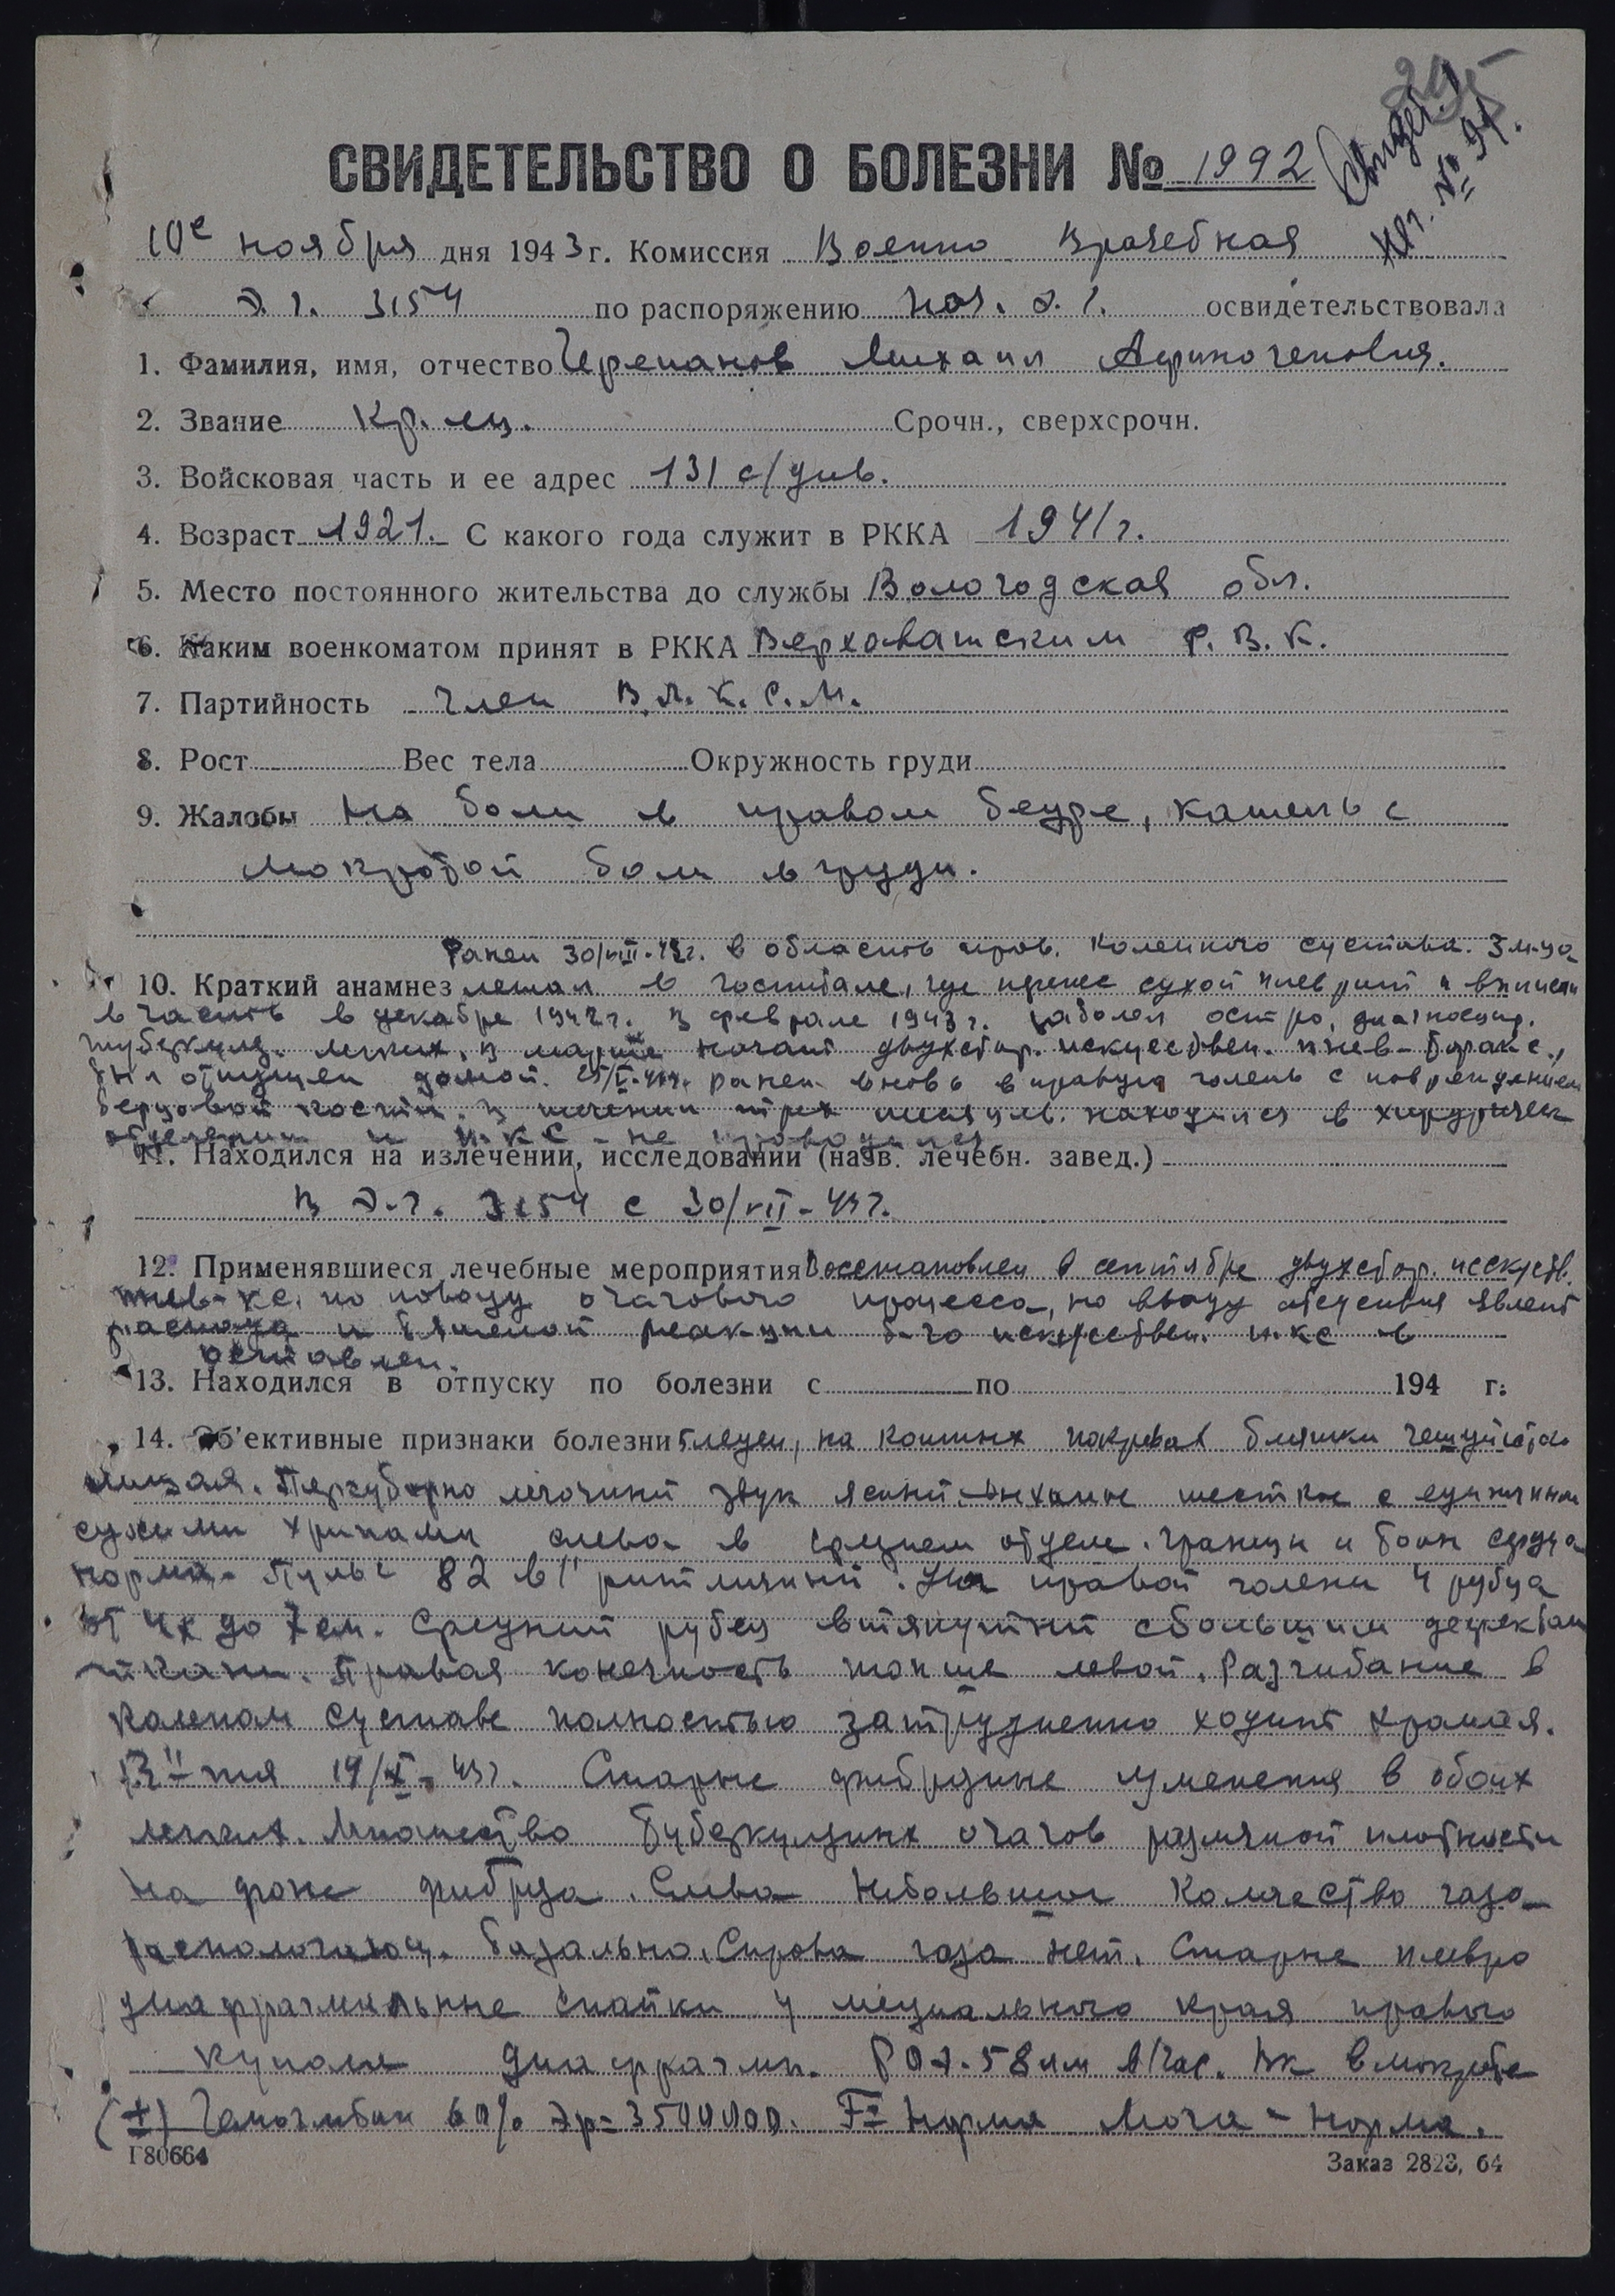 295
Свидет.
№ 91.
СВИДЕТЕЛЬСТВО О БОЛЕЗНИ № 1992
10е ноября дня 1943 г. Комиссия Военно Врачебная
Э. Г. 3154 по распоряжению нач. э. г. освидетельствовала
1. Фамилия, имя, отчество Черепанов Михаил Афиногенович.
2. Звание Кр-ец. Срочн., сверхсрочн.
3. Войсковая часть и ее адрес 131 с/див.
4. Возраст 1921. С какого года служит в РККА 1941 г.
5. Место постоянного жительства до службы Вологодская обл.
6. Каким военкоматом принят в РККА Верховатским Р. В. К.
7. Партийность член В. Л. К. С. М.
8. Рост Вес тела Окружность груди
9. Жалобы На боли в правом бедре, кашель с
мокротой боли в груди.
Ранен 30/VIII-42г. в область прав. коленного сустава. 3 м-ца
10. Краткий анамнез лежал в госпитале, где перенес сухой плеврит и выписан
в часть в декабре 1942 г. В феврале 1943 г. заболел остро, диагносцир.
туберкулез легких. В марте начат двухстор. искусствен. пнев-торакс.,
был отпущен домой. ранен вновь в правую голень с повреждением
берцовой кости. В течении трех месяцев находился в хирургическ
отделении и п-кс - не проводился
11. Находился на излечении, исследовании (назв. лечебн. завед.)
В Э. Г. 3154 с 30/VII-43г.
12. Применявшиеся лечебные мероприятия Восстановлен в сентябре двухстор. искусств.
пнев-кс. по поводу очагового процесса, но ввиду отсутствия явлений
распада и реакции искусствен. п-кс
оставлен.
13. Находился в отпуску по болезни с по 194 г.
14. Об'ективные признаки болезни Бледен, на кожных покровах бляшки чешуйчатого
лишая. Перкуторно легочный звук ясный. Дыхание жесткое с единичными
сухими хрипами слева в среднем отделе. Границы и тоны сердца
норма. Пульс 82 в 1' ритмичный. На правой голени 4 рубца
от 4х до 7 см. Средний рубец втянутый с большим дефектом
ткани. Правая конечность тоньше левой. Разгибание в
коленом суставе полностью затруднено ходит хромая.
R-ия 19/X-43г. Старые фиброзные изменения в обоих
легких. Множество туберкулезных очагов различной плотности
на фоне фиброза. Слева небольшое количество газа
располагающ. базально. Справа газа нет. Старые плевро
диафрагмальные спайки у медиального края правого
купола диафрагмы. РОЭ-58 мм в час. Вк в мокроте
(+) Гемоглобин 60% Эр=3500000. Норма Моча - норма.
Г80664 Заказ 2823, 64